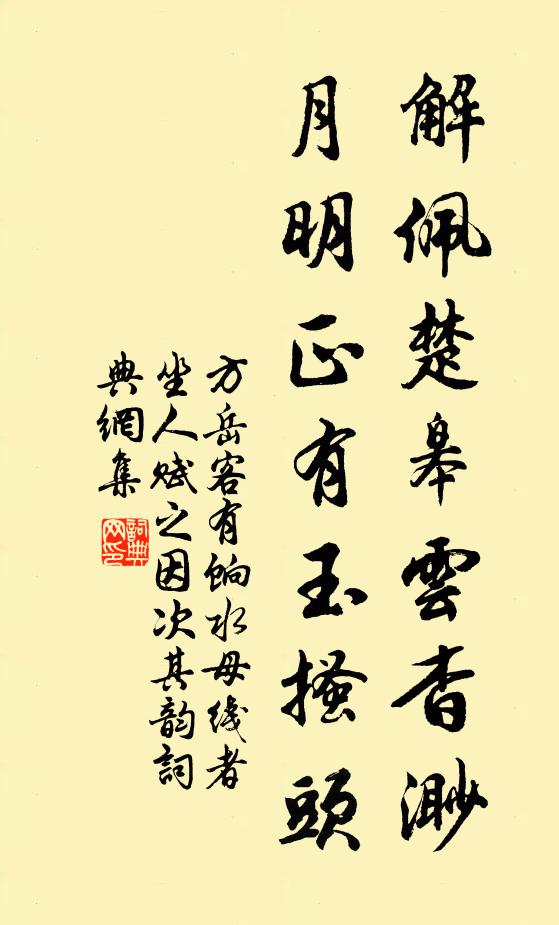 解佩楚皋雲杳渺
月明正有玉搔頭
方岳客有餉水母線者
坐人賦之因次其韵詞
典網集
詞典网印